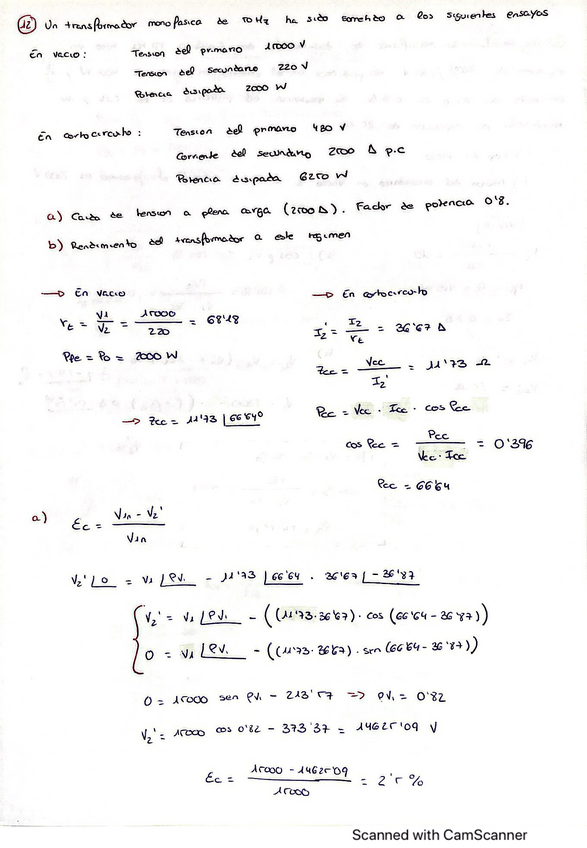 12 Un transformador monofasica de 50 Hz ha sido sometido a los siguientes ensayos
En vacio : Tension del primario 15000 V
Tension del secundario 220 V
Potencia disipada 2000 W
En cortocircuito : Tension del primario 430 V
Corriente del secundario 2500 A p.c
Potencia disipada 6250 W
a) Caida de tension a plena carga (2500 A). Factor de potencia 0'8.
b) Rendimiento del transformador a este regimen
→ En vacio
rt = V1/V2 = 15000/220 = 68'18
PFe = Po = 2000 W
→ Zcc = 11'73 ∠66'64º
→ En cortocircuito
I2' = I2/rt = 36'67 A
Zcc = Vcc/I2' = 11'73 Ω
Pcc = Vcc · Icc · cos φcc
cos φcc = Pcc/(Vcc · Icc) = 0'396
φcc = 66'64
a) Ec = (V1n - V2')/V1n
V2' ∠0 = V1 ∠φV1 - 11'73 ∠66'64 · 36'67 ∠-36'87
V2' = V1 ∠φV1 - ((11'73·36'67) · cos (66'64 - 36'87))
0 = V1 ∠φV1 - ((11'73·36'67) · sen (66'64 - 36'87))
0 = 15000 sen φV1 - 213'57 => φV1 = 0'82
V2' = 15000 cos 0'82 - 373'37 = 14625'09 V
Ec = (15000 - 14625'09)/15000 = 2'5 %
Scanned with CamScanner